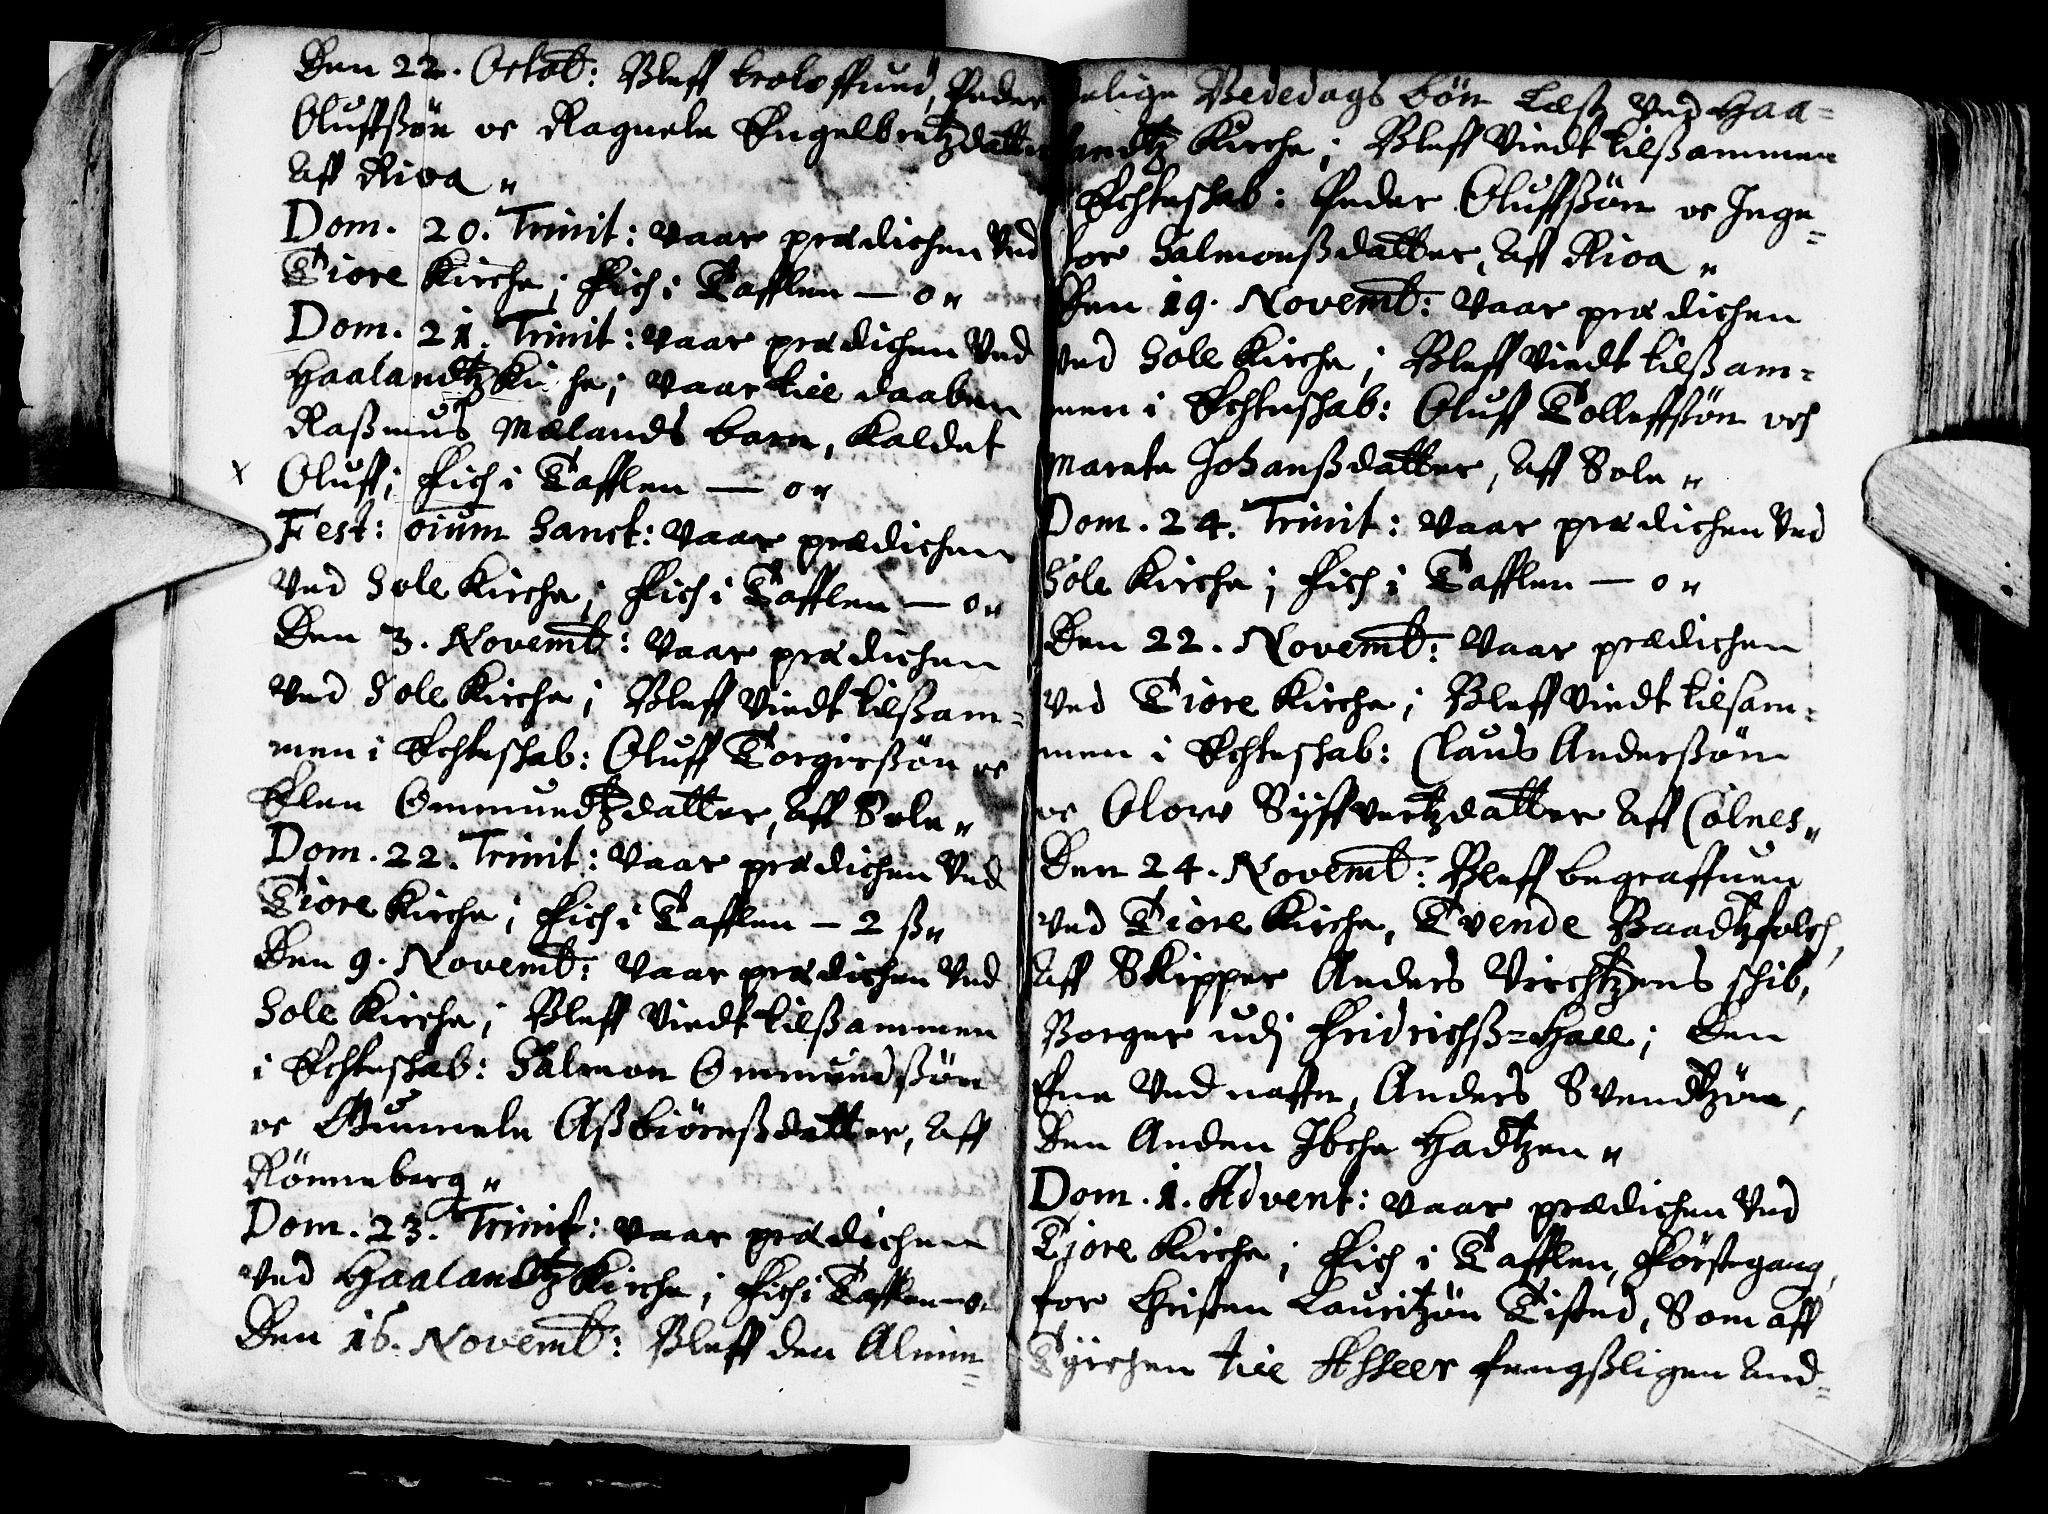 Den 22. Octob: Bleff troloffuid, Peder
Oluffßön oc Raguele Engelbretzdatter
aff Rioa „
Dom. 20. Trinit: vaar prædichen ved
Tiore Kirche; Fich i Tafflen — 0 „
Dom. 21. Trinit: vaar prædichen ved
Haalandtz Kirche; vaar till daaben
Raßmus Mælands barn, kaldet
x Oluff; Fich i Tafflen — 0 „
Fest: oium Sanct: vaar prædichen
ved Sole Kirche; Fich i Tafflen — 0 „
Den 3. Novemb: vaar prædichen
ved Sole Kirche; Bleff viedt tilßam=
men i Echteskab: Oluff Torgierßön oc
Elen Ommundtzdatter, aff Sole „
Dom. 22. Trinit: vaar prædichen ved
Tiore Kirche; Fich i Tafflen — 2 ß „
Den 9. Novemb: vaar prædichen ved
Sole Kirche; Bleff viedt tilßammen
i Echteskab: Salmon Ommundßön
oc Gunnele Aßbiörnßdatter, aff
Rönneberg „
Dom. 23. Trinit: vaar prædichen
ved Haalandtz Kirche; Fich i Tafflen — 0.
Den 16. Novemb: Bleff den Almin=
delige Bededags bön læst ved Haa=
landtz Kirche; Bleff viedt tilßammen
i Echteskab: Peder Oluffßön oc Inge=
bor Salmonßdatter, aff Rioa „
Den 19. Novemb: vaar prædichen
ved Sole Kirche; Bleff viedt tilßam=
men i Echteskab: Oluff Tolleffßön och
Marete Johanßdatter, aff Sole „
Dom. 24. Trinit: vaar prædichen ved
Sole Kirche; Fich i Tafflen — 0 „
Den 22. Novemb: vaar prædichen
ved Tiore Kirche; Bleff viedt tilsam=
men i Echteskab: Claus Anderßön
oc Olow Syffvertzdatter aff Cölnes „
Den 24. Novemb: Bleff begraffuen
ved Tiore Kirche, Tvende Baadtzfolch,
aff Skipper Anders Virchtzens skib,
Borger udj Fridrichß=Hall; Den
Ene ved naffn, Anders Svendtzön,
Den Anden Ibche Hadtzen „
Dom. 1. Advent: vaar prædichen ved
Tiore Kirche; Fich i Tafflen, Förstegang,
for Christen Lauritzön Tisted, Som aff
Tyrchen till Asseer fengßligen and=